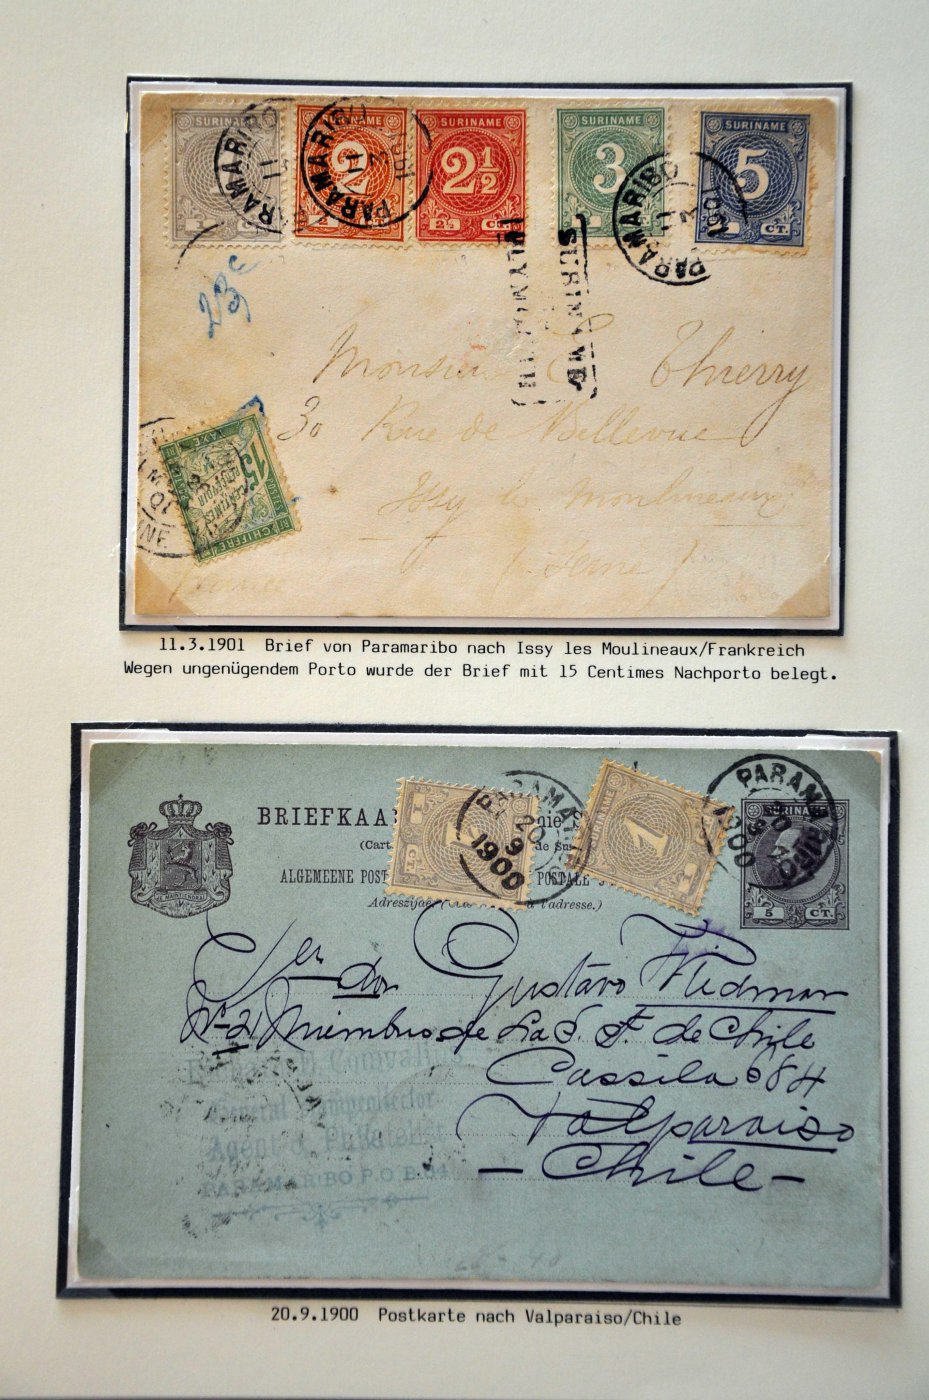 SURINAME SURINAME SURINAME SURINAME SURINAME
2 2½ 3 5
CT. 2 CT. 2½ CT. CT. CT.
PARAMARIBO 11 3 1901
PARAMARIBO 11 3 1901
PARAMARIBO 11 3 1901
SURINAME
23c
Monsieur Thierry
30 Rue de Bellevue
Issy les Moulineaux
(Seine)
France
CHIFFRE TAXE
15 CENTIMES
11.3.1901 Brief von Paramaribo nach Issy les Moulineaux/Frankreich
Wegen ungenügendem Porto wurde der Brief mit 15 Centimes Nachporto belegt.
BRIEFKAA
(Cart de Su
ALGEMEENE POST POSTALE
Adreszijde à l'adresse.)
JE MAINTIENDRAI
1 1
PARAMARIBO 20 9 1900
PARAMARIBO 1900
SURINAME
5 CT.
Señor don Gustavo Fledmar
No 21 Miembro de La S. F. de Chile
Cassila 684
Valparaiso
- Chile -
General
Agent & Philatelist
PARAMARIBO P.O.B. 64
20.9.1900 Postkarte nach Valparaiso/Chile